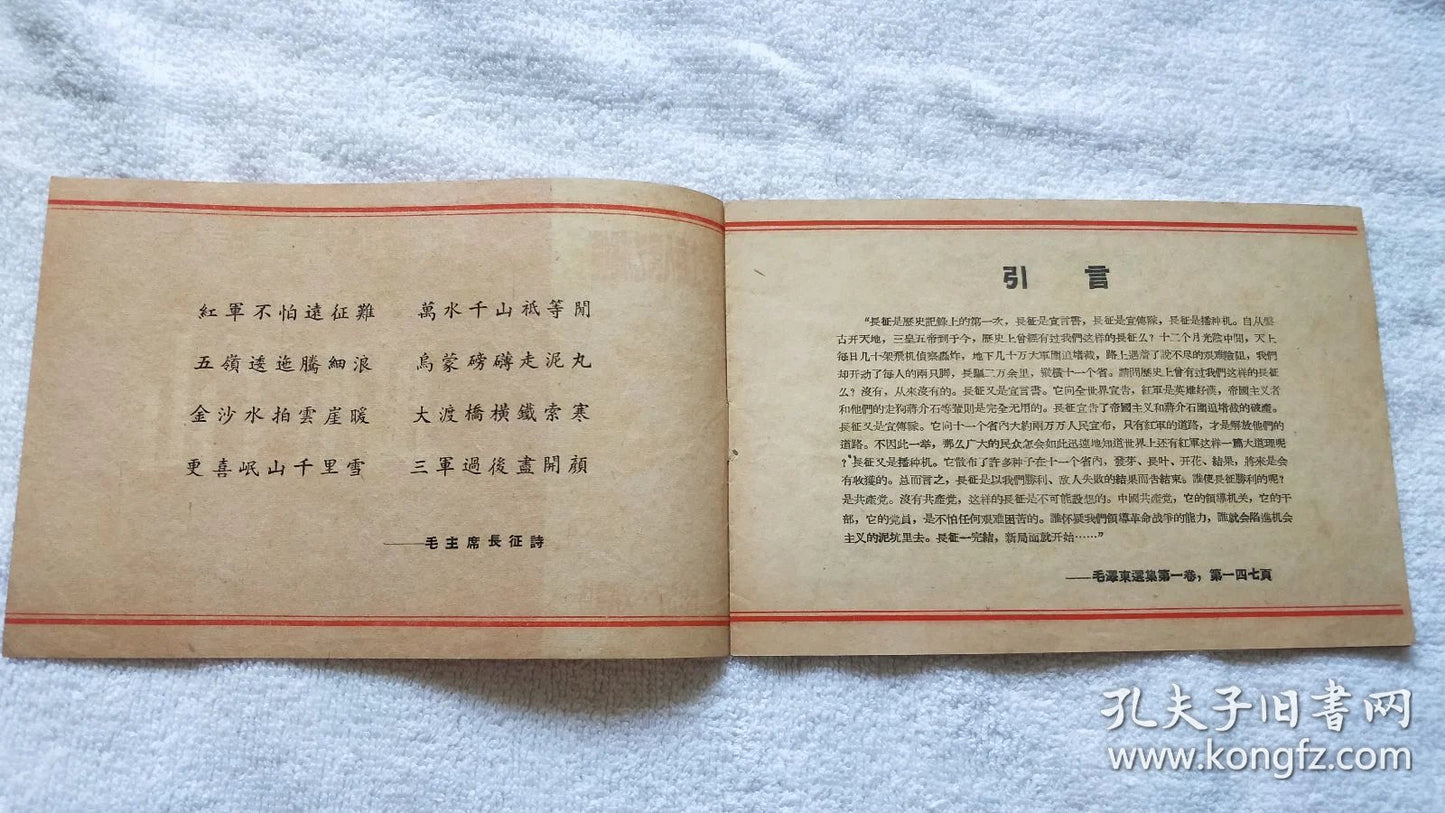 紅軍不怕遠征難 萬水千山祇等閒
五嶺逶迤騰細浪 烏蒙磅礴走泥丸
金沙水拍雲崖暖 大渡橋橫鐵索寒
更喜岷山千里雪 三軍過後盡開顏
——毛主席長征詩
引言
“長征是歷史記錄上的第一次，長征是宣言書，長征是宣傳隊，長征是播种机。自从盤
古开天地，三皇五帝到于今，歷史上曾經有过我們这样的長征么？十二个月光陰中間，天上
每日几十架飛机偵察轟炸，地下几十万大軍圍追堵截，路上遇着了說不尽的艰难險阻，我們
却开动了每人的兩只脚，長驅二万余里，縱橫十一个省。請問歷史上曾有过我們这样的長征
么？沒有，从來沒有的。長征又是宣言書。它向全世界宣告，紅軍是英雄好漢，帝國主义者
和他們的走狗蔣介石等輩則是完全无用的。長征宣告了帝國主义和蔣介石圍追堵截的破產。
長征又是宣傳隊。它向十一个省內大約兩万万人民宣布，只有紅軍的道路，才是解放他們的
道路。不因此一举，那么广大的民众怎会如此迅速地知道世界上还有紅軍这样一篇大道理呢
？長征又是播种机。它散布了許多种子在十一个省內，發芽、長叶、开花、結果，將來是会
有收獲的。总而言之，長征是以我們勝利、敌人失敗的結果而告結束。誰使長征勝利的呢？
是共產党。沒有共產党，这样的長征是不可能設想的。中國共產党，它的領導机关，它的干
部，它的党員，是不怕任何艰难困苦的。誰怀疑我們領導革命战爭的能力，誰就会陷進机会
主义的泥坑里去。長征一完結，新局面就开始……”
——毛澤東選集第一卷，第一四七頁
孔夫子旧書网
www.kongfz.com